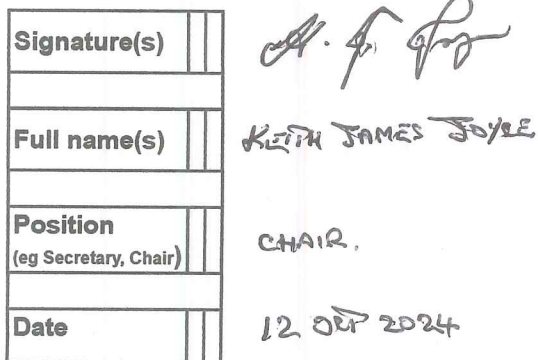 Signature(s)
Full name(s) KEITH JAMES JOYCE
Position
(eg Secretary, Chair) CHAIR.
Date 12 OCT 2024